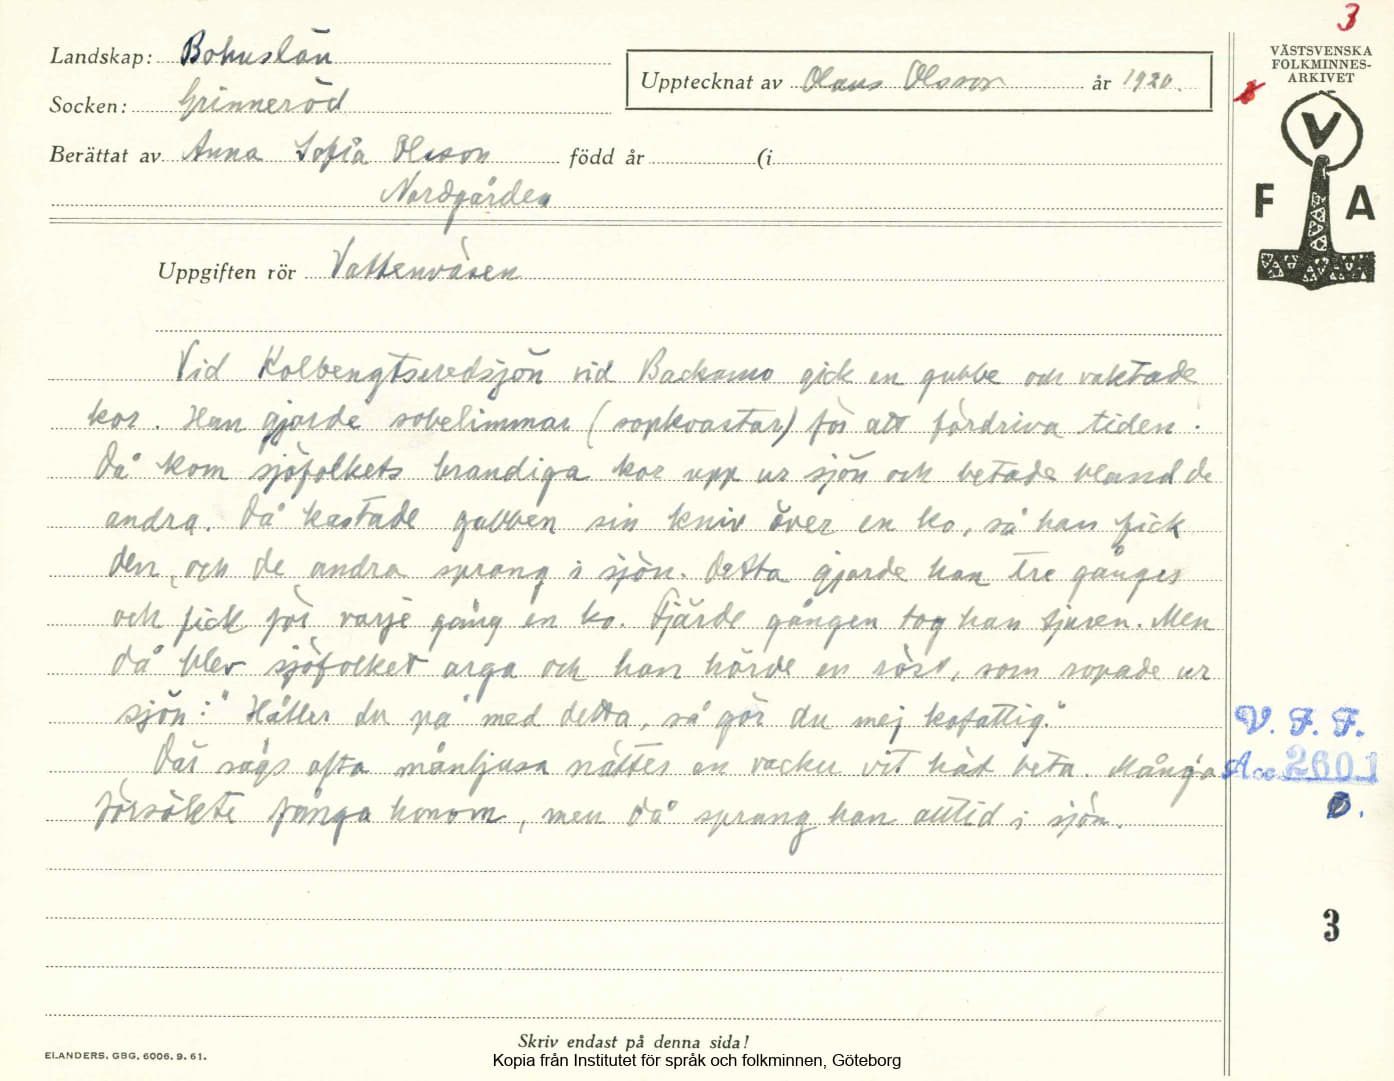 3
Landskap: Bohuslän
Socken: Grinneröd
Upptecknat av Olaus Olsson år 1920.
Berättat av Anna Sofia Olsson född år (i
Nordgården
Uppgiften rör Vattenväsen
Vid Kolbengtseredsjön vid Backamo gick en gubbe och vaktade
kor. Han gjorde sobelimmar (sopkvastar) för att fördriva tiden.
Då kom sjöfolkets brandiga kor upp ur sjön och betade bland de
andra. Då kastade gubben sin kniv över en ko, så han fick
den, och de andra sprang i sjön. Detta gjorde han tre gånger
och fick för varje gång en ko. Fjärde gången tog han tjuren. Men
då blev sjöfolket arga och han hörde en röst, som ropade ur
sjön: "Håller du på med detta, så gör du mej kofattig."
Där sågs ofta månljusa nätter en vacker vit häst beta. Många
försökte fånga honom, men då sprang han alltid i sjön.
VÄSTSVENSKA
FOLKMINNES-
ARKIVET
V
F A
V. F. F.
Acc 2601
3
Skriv endast på denna sida!
ELANDERS, GBG, 6006. 9. 61.
Kopia från Institutet för språk och folkminnen, Göteborg